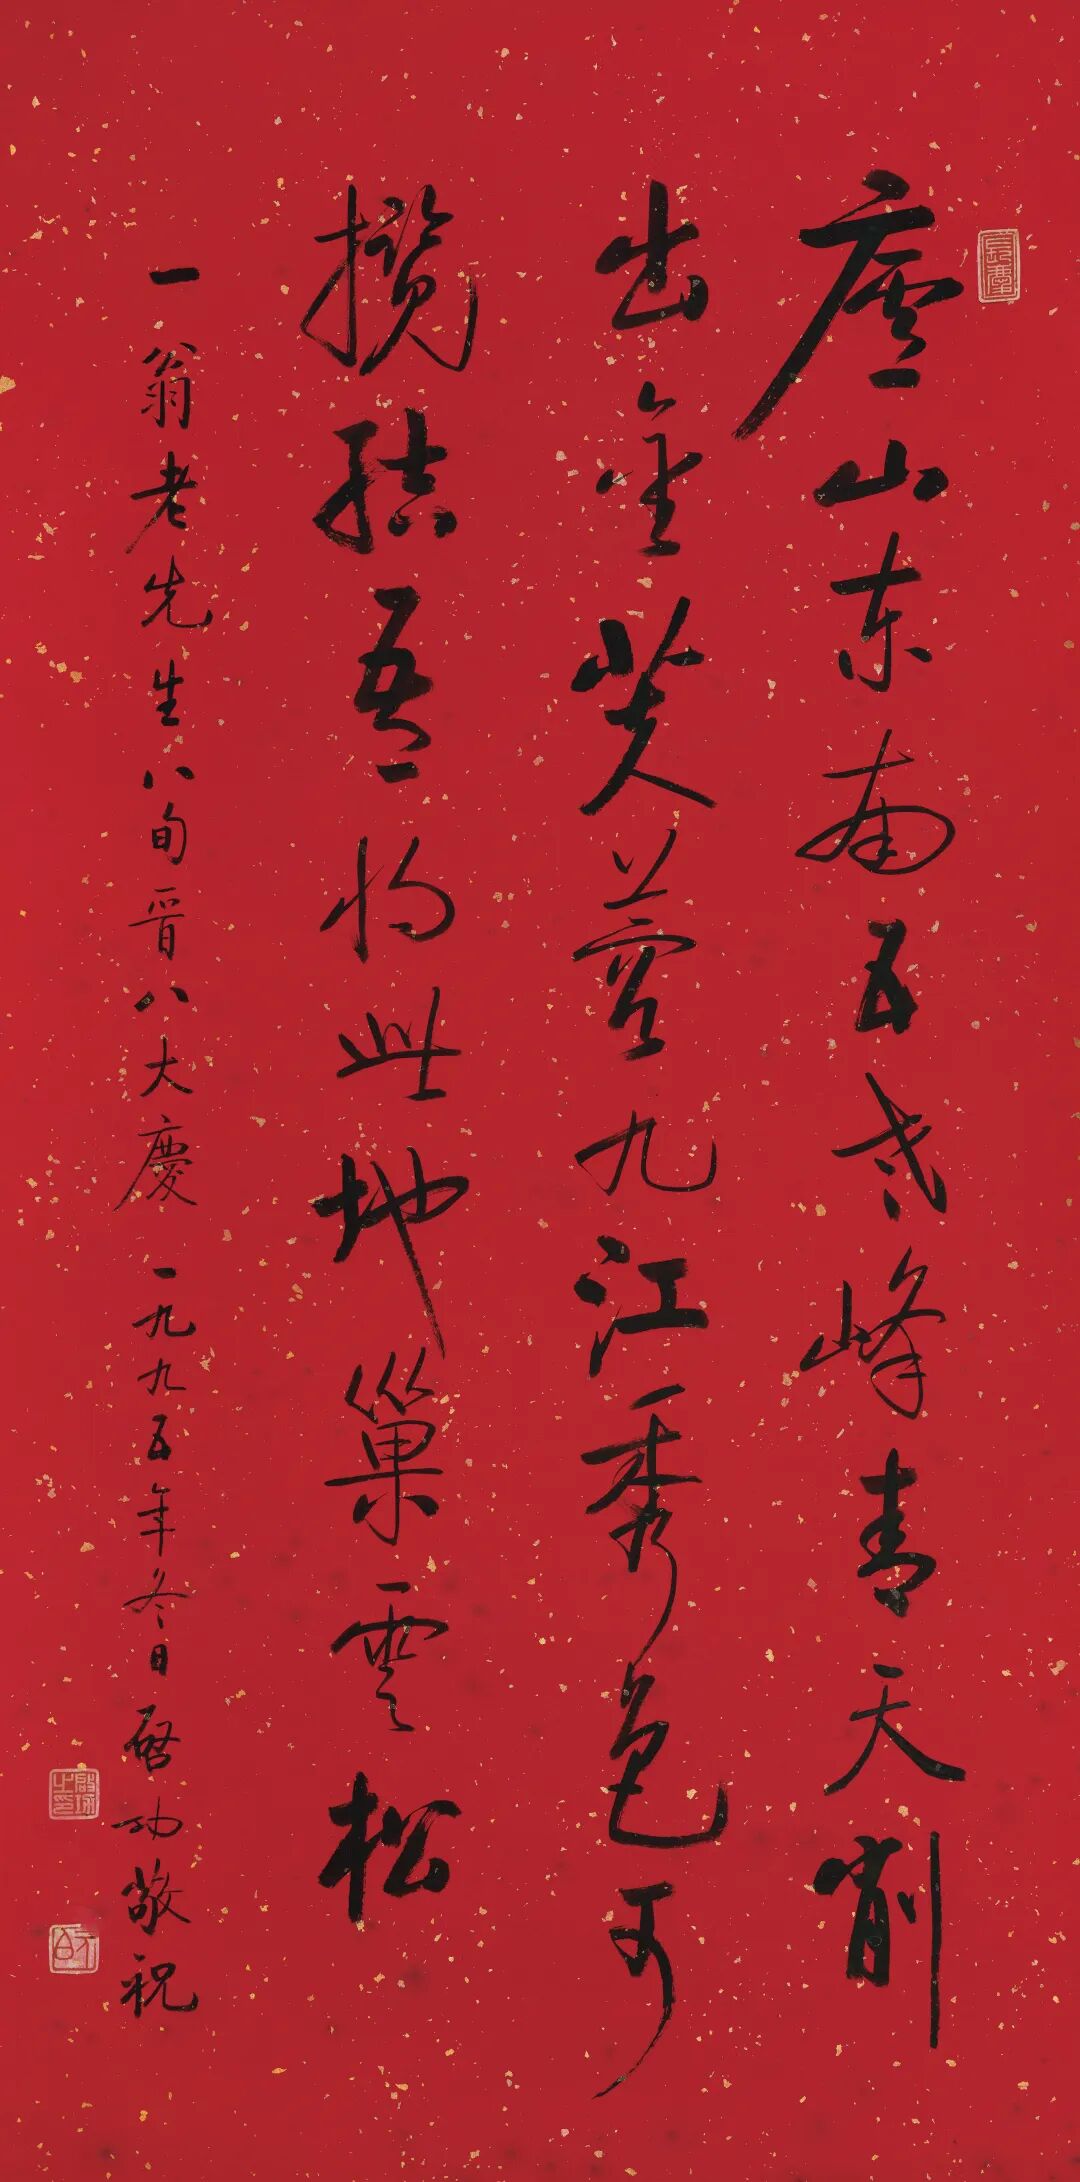 廬山东南五老峰青天削
出金芙蓉九江秀色可
攬結吾将此地巢雲松
一翁老先生八旬晋八大慶 一九九五年冬日 啓功敬祝
啟功之印
元白